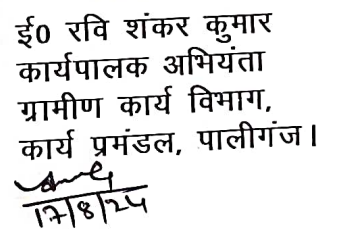 ई0 रवि शंकर कुमार
कार्यपालक अभियंता
ग्रामीण कार्य विभाग,
कार्य प्रमंडल, पालीगंज।
17/8/24